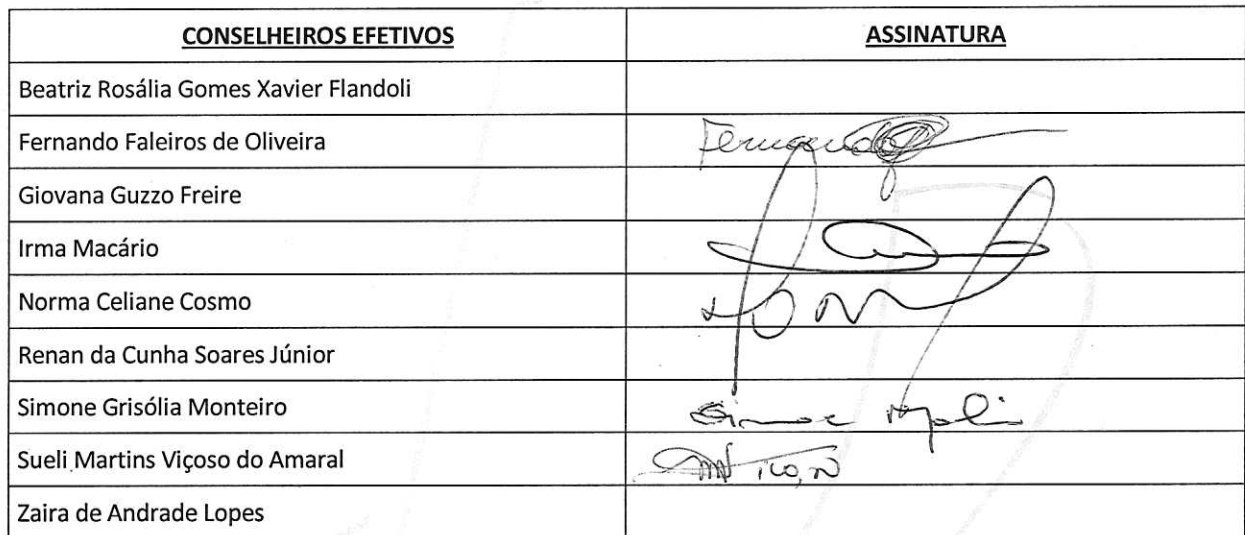 CONSELHEIROS EFETIVOS ASSINATURA
Beatriz Rosália Gomes Xavier Flandoli
Fernando Faleiros de Oliveira Fernando
Giovana Guzzo Freire
Irma Macário
Norma Celiane Cosmo
Renan da Cunha Soares Júnior
Simone Grisólia Monteiro Simone
Sueli Martins Viçoso do Amaral
Zaira de Andrade Lopes